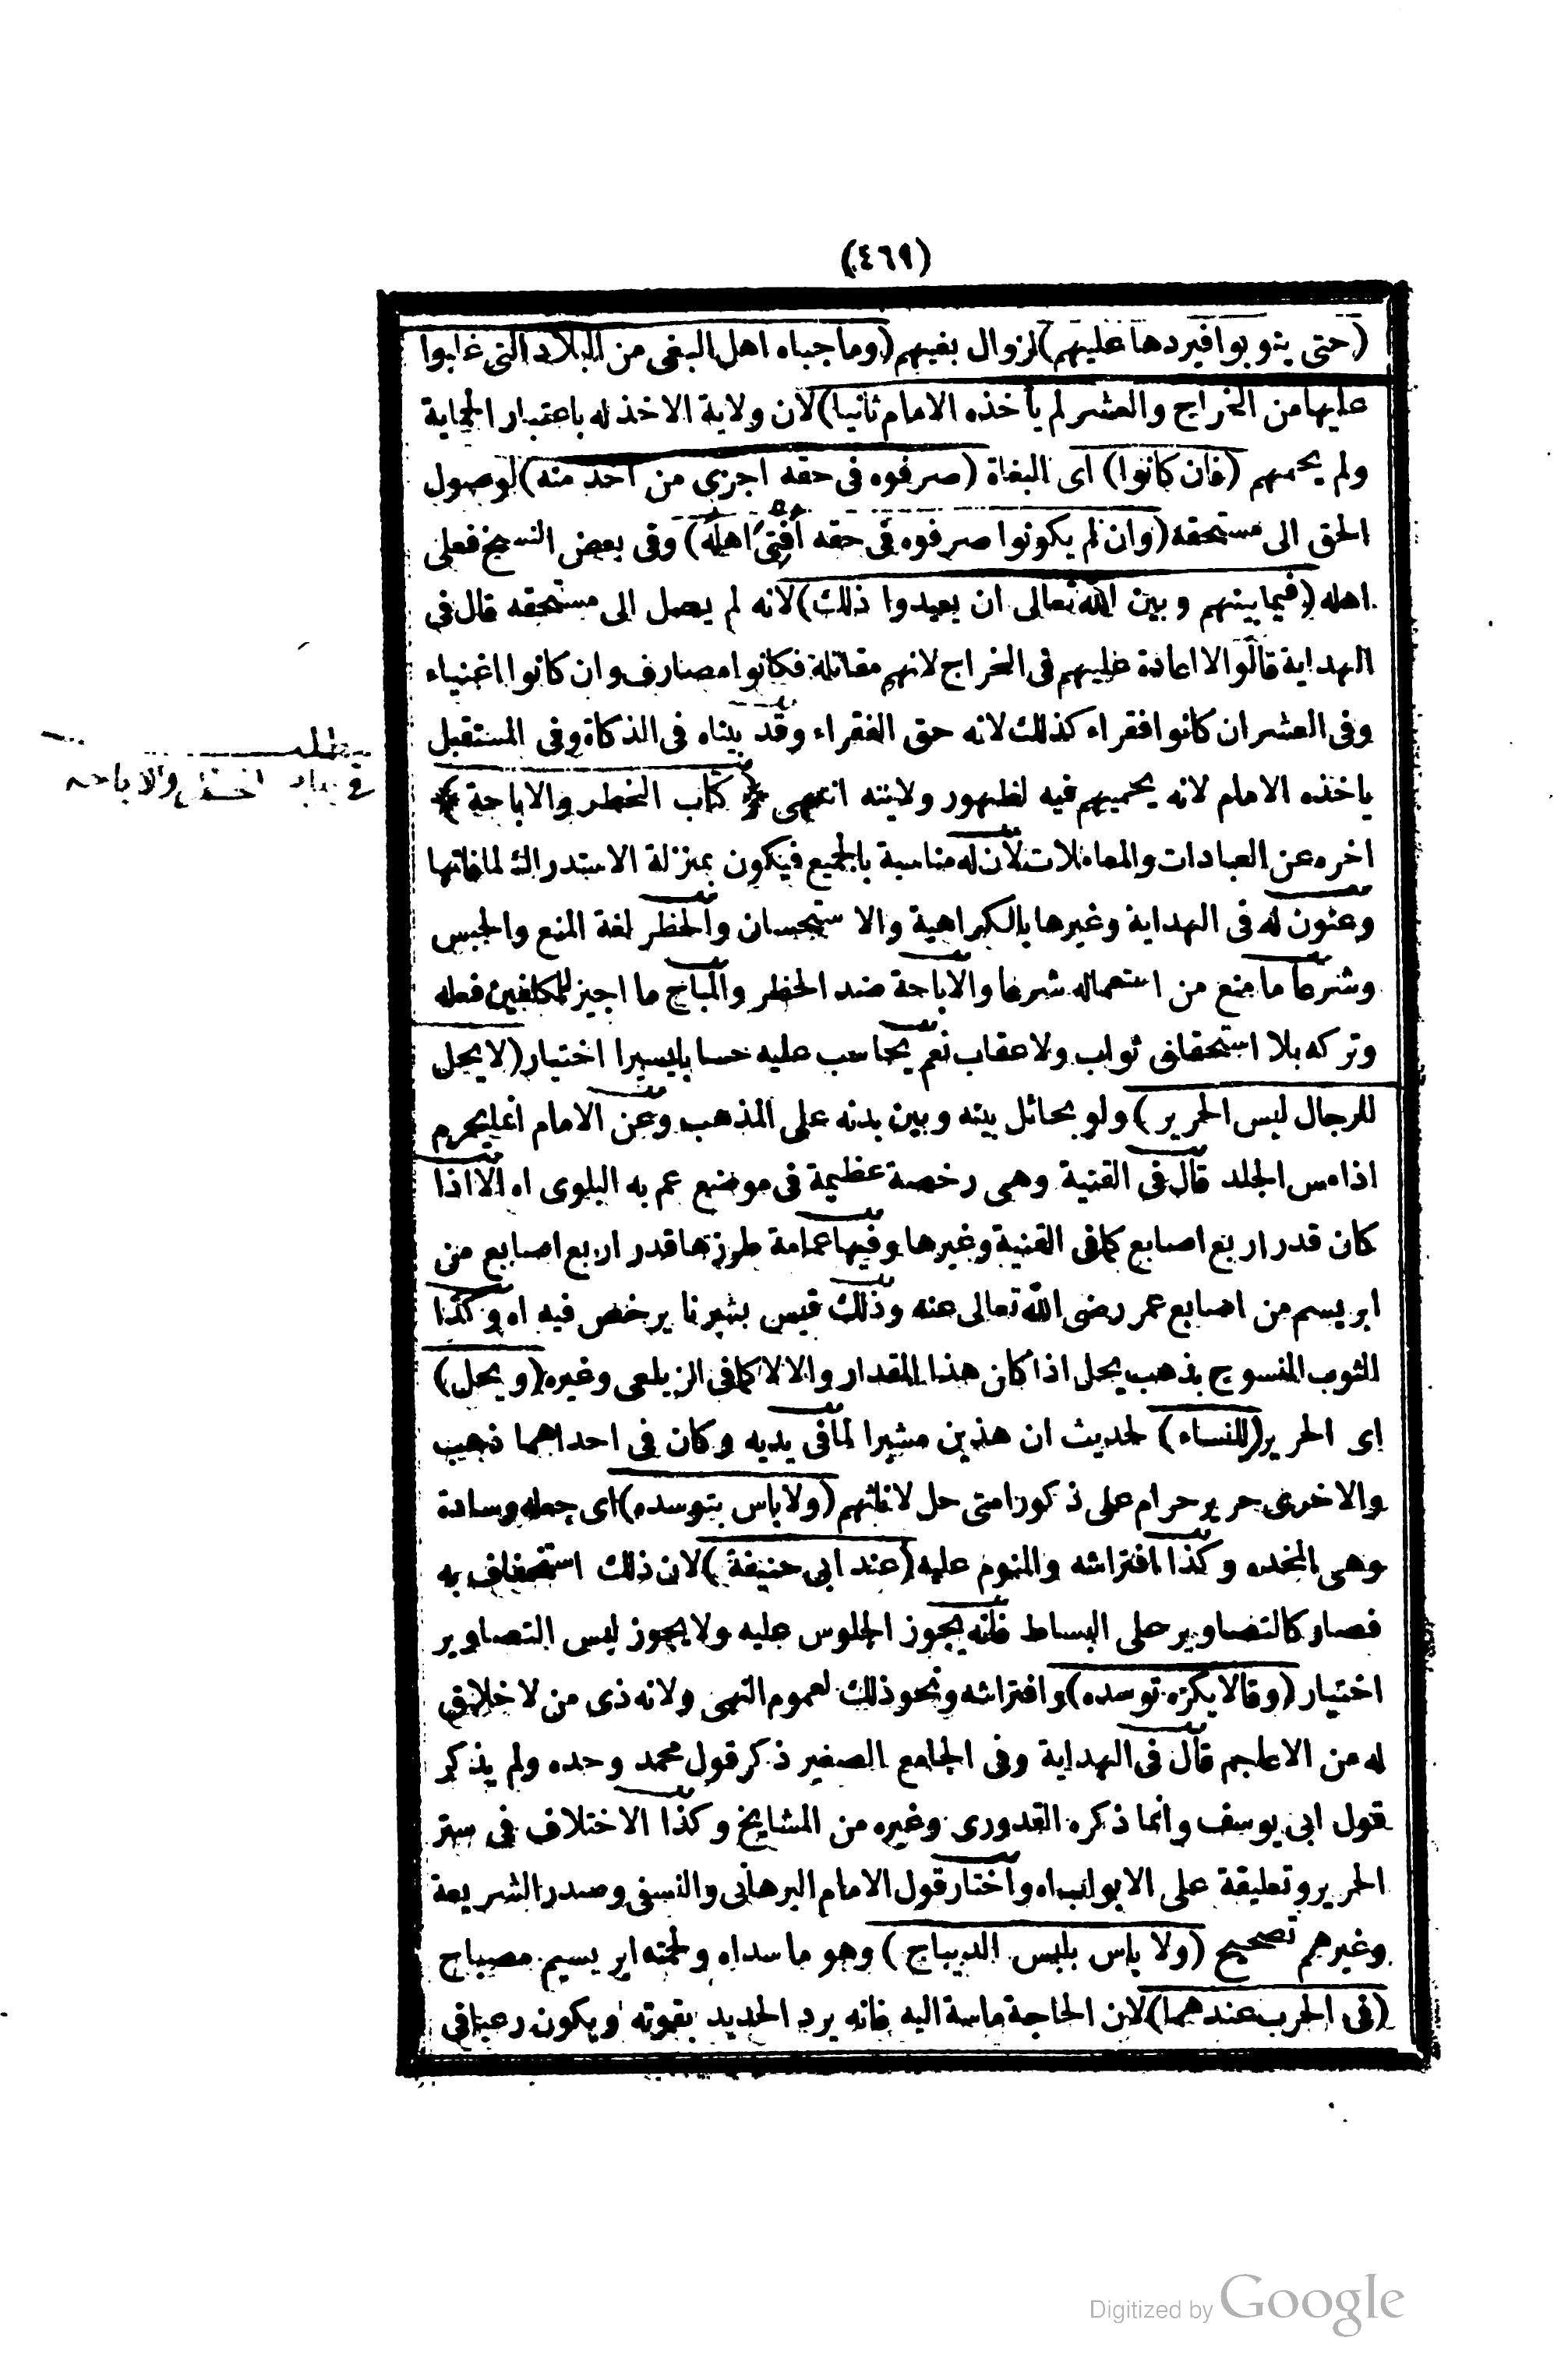 (٤٦٩)
(حتى يتوبوا فيردها عليهم) لزوال بغيهم (وما جباه اهل البغى من البلاد التى غلبوا
عليها من الخراج والعشر لم يأخذه الامام ثانيا) لان ولاية الاخذ له باعتبار الحماية
ولم يحمهم (فان كانوا) اى البغاة (صرفوه فى حقه اجزى من اخد منه) لوصول
الحق الى مستحقه (وان لم يكونوا صرفوه فى حقه افتى اهله) وفى بعض النسخ فعلى
اهله (فيما بينهم وبين الله تعالى ان يعيدوا ذلك) لانه لم يصل الى مستحقه قال فى
الهداية قالوا لا اعادة عليهم فى الخراج لانهم مقاتلة فكانوا مصارف وان كانوا اغنياء
وفى العشر ان كانوا فقراء كذلك لانه حق الفقراء وقد بيناه فى الذكاة وفى المستقبل
ياخذه الامام لانه يحميهم فيه لظهور ولايته انتهى ﴿ كتاب الحظر والاباحة ﴾
مطلب
فى والاباحه
اخره عن العبادات والمعاملات لان له مناسبة بالجميع فيكون بمنزلة الاستدراك لما فاتها
وعنون له فى الهداية وغيرها بالكراهية والاستحسان والحظر لغة المنع والحبس
وشرعا ما منع من استعماله شرعا والاباحة ضد الحظر والمباح ما اجيز للمكلفين فعله
وتركه بلا استحقاق ثواب ولا عقاب نعم يحاسب عليه حسابا يسيرا اختيار (لا يحل
للرجال لبس الحرير) ولو بحائل بينه وبين بدنه على المذهب وعن الامام انما يحرم
اذا مس الجلد قال فى القنية وهى رخصة عظيمة فى موضع عم به البلوى اه الا اذا
كان قدر اربع اصابع كما فى القنية وغيرها وفيها عمامة طرزها قدر اربع اصابع من
ابريسم من اصابع عمر رضى الله تعالى عنه وذلك قيس بشبرنا يرخص فيه اه وكذا
الثوب المنسوج بذهب يحل اذا كان هذا المقدار والا لا كما فى الزيلعى وغيره (ويحل)
اى الحرير (للنساء) لحديث ان هذين مشيرا لما فى يديه وكان فى احداهما ذهب
والاخرى حرير حرام على ذكور امتى حل لاناثهم (ولا باس بتوسده) اى جعله وسادة
وهى المخده وكذا افتراشه والنوم عليه (عند ابى حنيفة) لان ذلك استخفاف به
فصار كالتصاوير على البساط فانه يجوز الجلوس عليه ولا يجوز لبس التصاوير
اختيار (وقالا يكره توسده) وافتراشه ونحو ذلك لعموم النهى ولانه زى من لا خلاق
له من الاعاجم قال فى الهداية وفى الجامع الصغير ذكر قول محمد وحده ولم يذكر
قول ابى يوسف وانما ذكره القدورى وغيره من المشايخ وكذا الاختلاف فى ستر
الحرير وتعليقة على الابواب اه واختار قول الامام البرهانى والنسفى وصدر الشريعة
وغيرهم تصحيح (ولا باس بلبس الديباج) وهو ما سداه ولحمته ابريسيم مصباح
(فى الحرب عندهما) لان الحاجة ماسة اليه فانه يرد الحديد بقوته ويكون رعبا فى
Digitized by Google